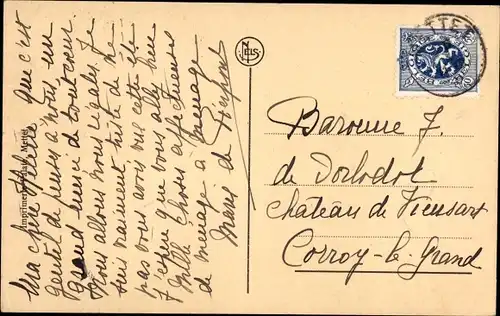 Ma chère Juliette Que c'est
gentil de penser à nous, un
Grand merci de tout cœur.
Nous allons nous régaler. Je
suis vraiment triste de ne
pas vous avoir vue cette été
J'espère que vous allez bien
Mille choses affectueuses
de ménage à ménage
Imprimerie Mettet
NELS
METTET
Baronne J.
de Dorlodot
Château de Vieusart
Corroy-le-Grand